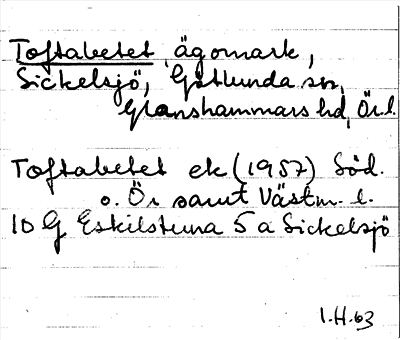 Toftabetet ägomark,
Sickelsjö, Götlunda sn,
Glanshammars hd, Ör.l.
Toftabetet ek (1957) Söd.
o. Ör samt Västm. l.
10 G Eskilstuna 5 a Sickelsjö
I.H.63